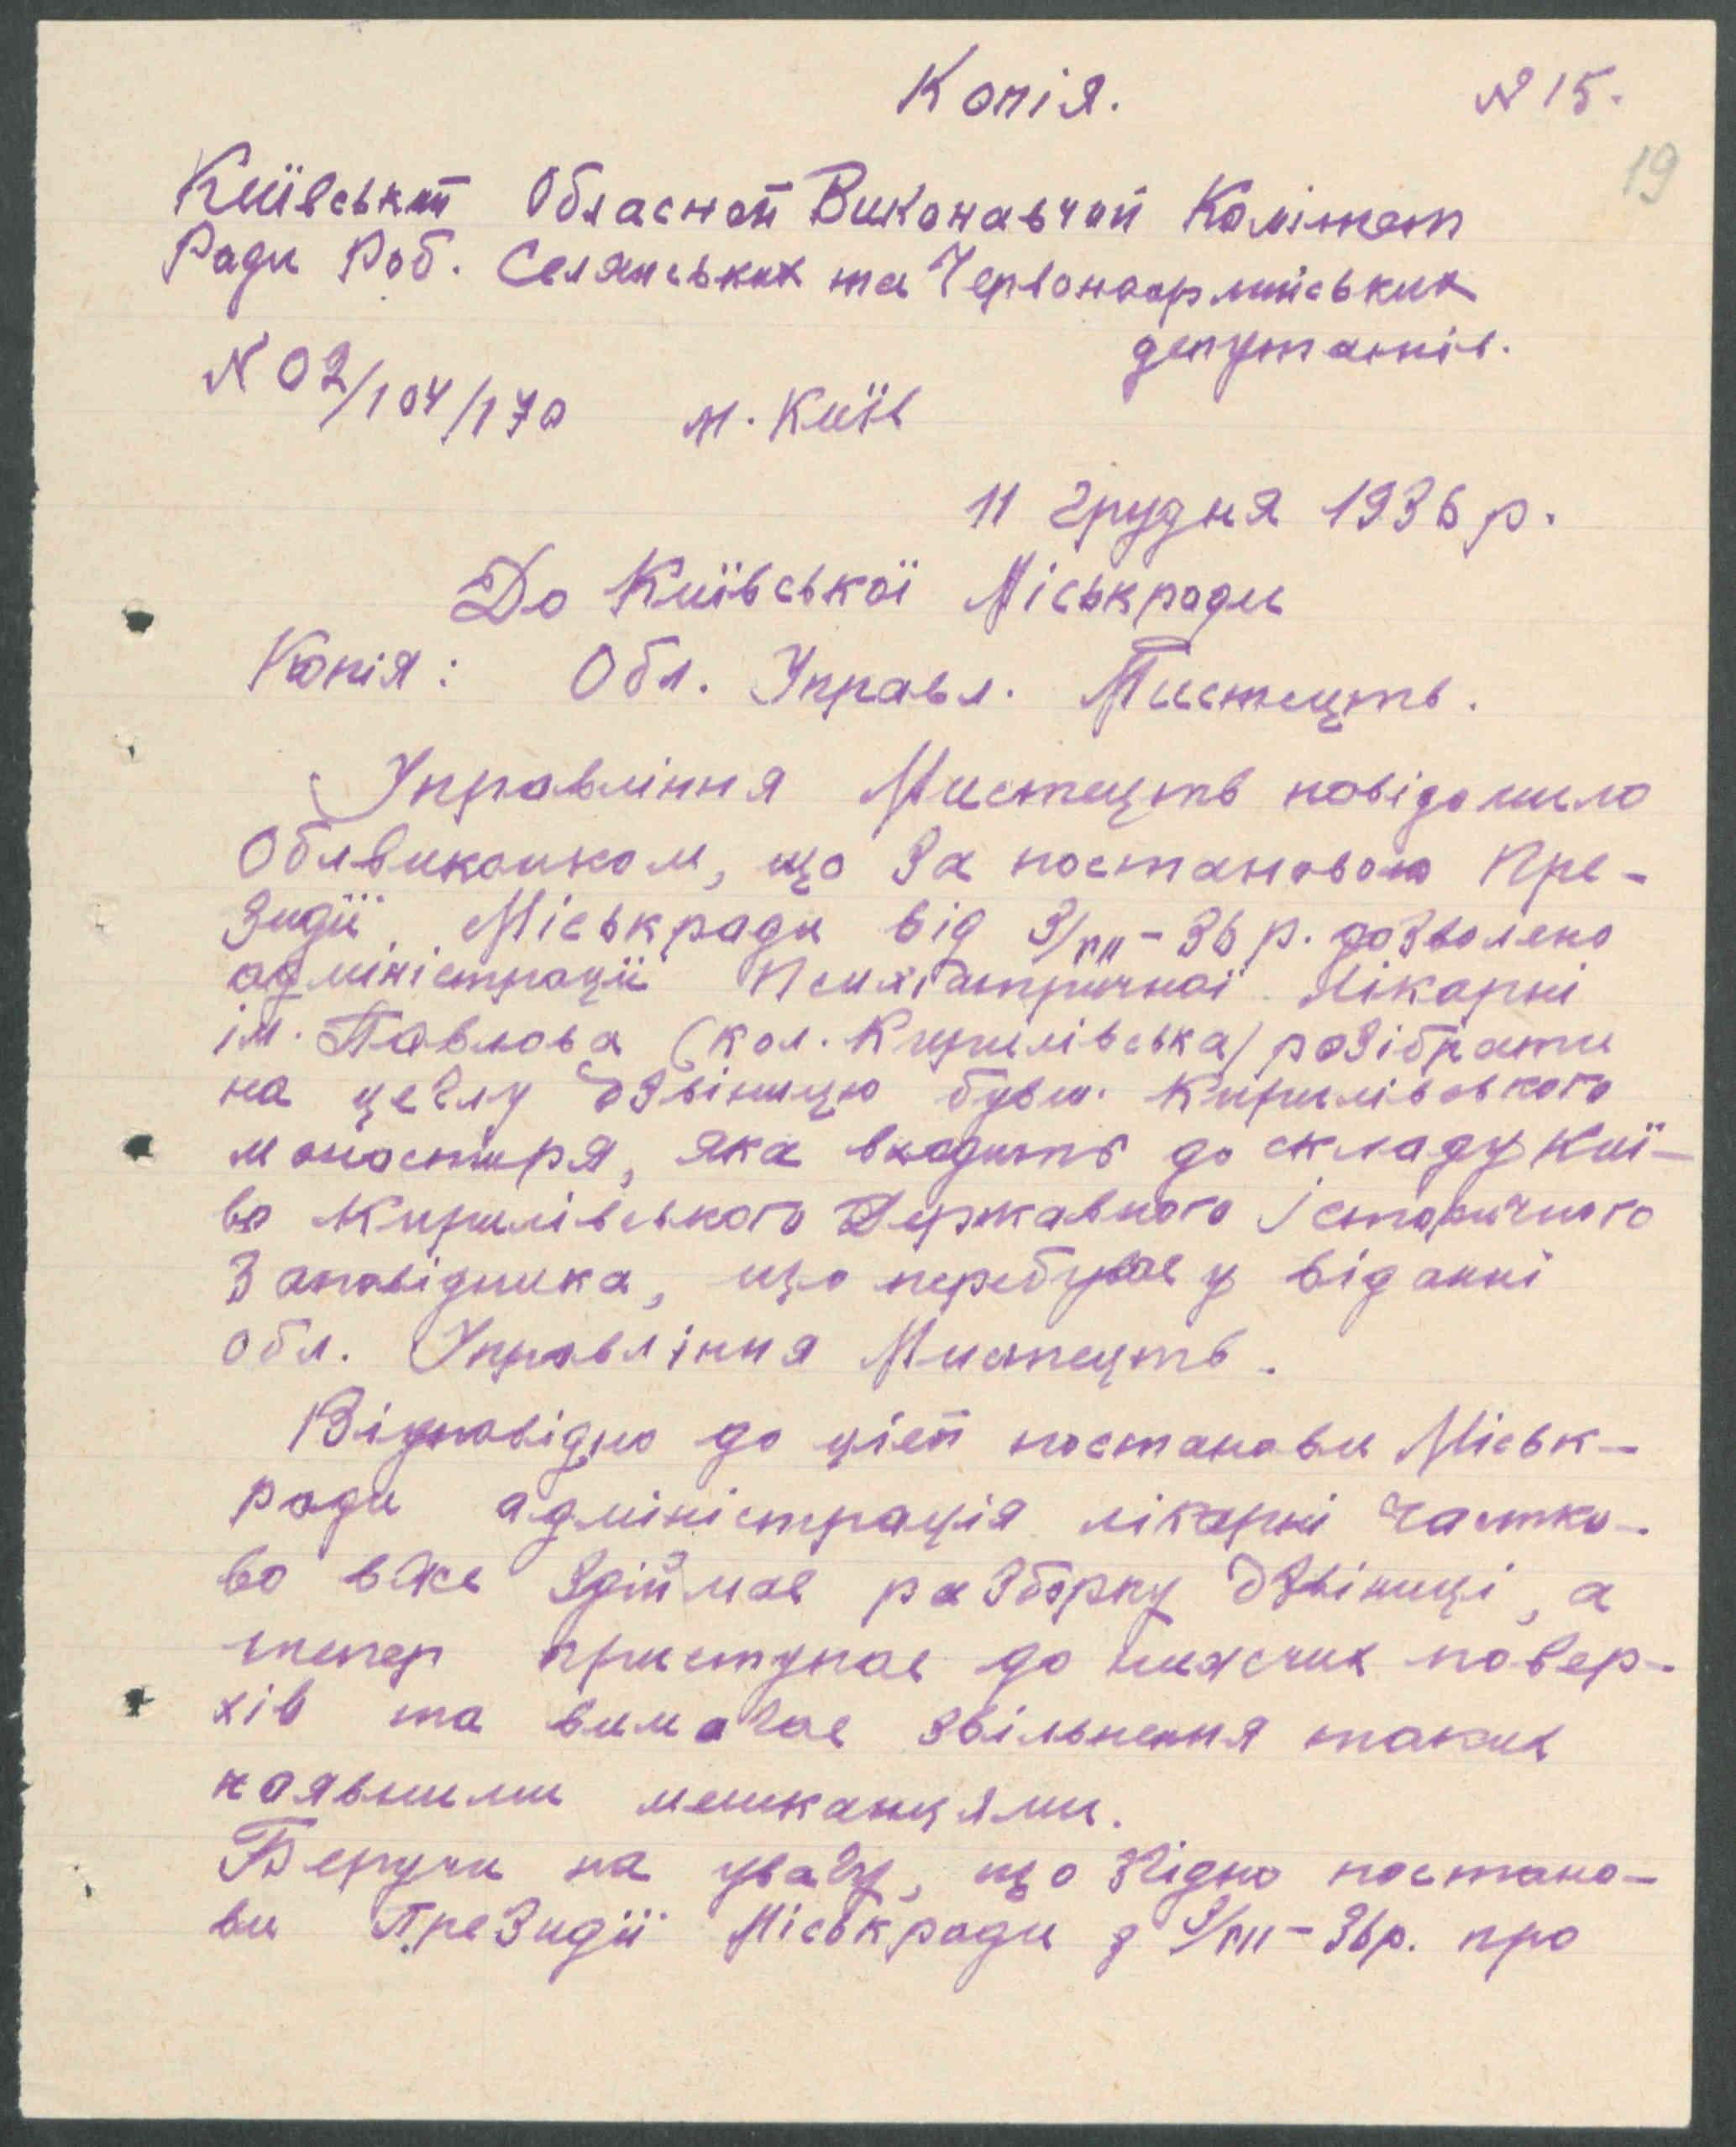 Копія.
№ 15.
19
Київський Обласной Виконавчий Комітет
Ради Роб. Селянських та Червоноармійських
депутатів.
№ 02/104/170 м. Київ
11 грудня 1936 р.
До Київської Міськради
Копія: Обл. Управл. Мистецтв.
Управління Мистецтв повідомило
Облвиконком, що за постановою Пре-
зидії Міськради від 3/VIII-36 р. дозволено
адміністрації Психіатричної Лікарні
ім. Павлова (кол. Кирилівська) розібрати
на цеглу дзвіницю бувш. Кирилівського
монастиря, яка входить до складу Киї-
во Кирилівського Державного Історичного
Заповідника, що перебуває у віданні
обл. Управління Мистецтв.
Відповідно до цієй постанови Міськ-
ради адміністрація лікарні частко-
во вже здіймає разборку дзвіниці, а
тепер приступає до нижчих повер-
хів та вимагає звільнення таких
наявними мешканцями.
Беручи на увагу, що згідно постано-
ви Президії Міськради з 3/VIII-36р. про